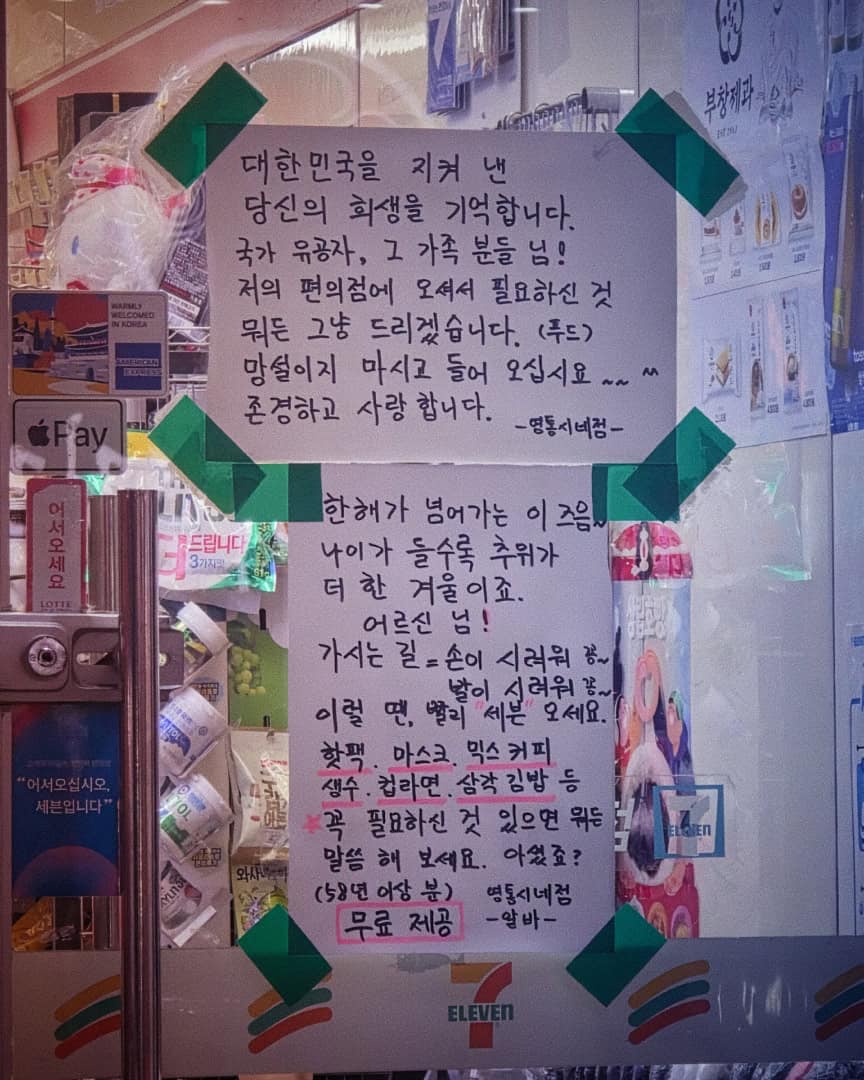 부창제과
대한민국을 지켜 낸
당신의 희생을 기억합니다.
국가 유공자, 그 가족 분들 님!
저의 편의점에 오셔서 필요하신 것
뭐든 그냥 드리겠습니다. (푸드)
망설이지 마시고 들어 오십시요 ~~ ^^
존경하고 사랑합니다.
-영통시네점-
WARMLY
WELCOMED
IN KOREA
AMERICAN
EXPRESS
Pay
어서오세요
LOTTE
드립니다
3가지맛
한해가 넘어가는 이 즈음~
나이가 들수록 추위가
더 한 겨울이죠.
어르신 님!
가시는 길 = 손이 시려워 꽁~
발이 시려워 꽁~
이럴 땐, 빨리 "세븐" 오세요.
핫팩. 마스크. 믹스커피
생수. 컵라면. 삼각김밥 등
꼭 필요하신 것 있으면 뭐든
말씀 해 보세요. 아셨죠?
(58년 이상 분)
영통시네점
-알바-
무료 제공
"어서오십시오,
세븐입니다"
와사
7
ELEVEN
7
ELEVEN